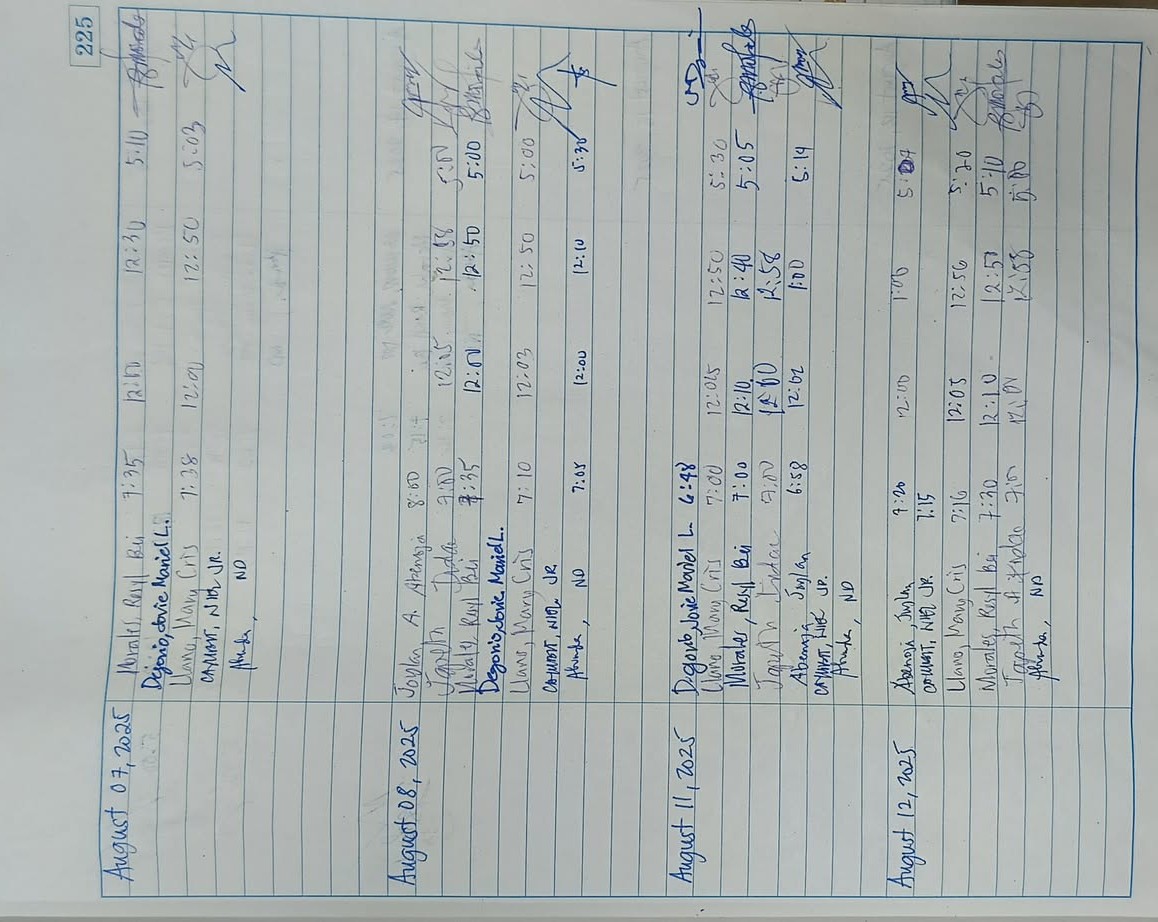 225
August 07, 2025 Morales, Rexyl Bei 7:35 12:00 12:30 5:10
Degorio, Jovie Mariel L.
Llano, Mary Cris 7:38 12:00 12:50 5:03
NIEL JR.
ND
August 08, 2025 Joylan A. Abenoja 8:00
Japeth 7:00 12:05 12:58 5:00
Morales Rexyl Bei 7:35 12:00 12:50 5:00
Degorio, Jovie Mariel L.
Llano, Mary Cris 7:10 12:03 12:50 5:00
NIEL JR
ND 7:08 12:00 12:10 5:30
August 11, 2025 Degorio, Jovie Mariel L. 6:48
Llano, Mary Cris 7:00 12:05 12:50 5:30
Morales, Rexyl Bei 7:00 12:10 12:40 5:05
Japeth 7:00 12:00 12:58
Abenoja Joylan 6:58 12:02 1:00 5:14
NIEL JR.
ND
August 12, 2025 Abenoja, Joylan 7:20 12:00 1:00 5:07
NIEL JR. 7:15
Llano, Mary Cris 7:16 12:05 12:56 5:20
Morales Rexyl Bei 7:30 12:10 12:50 5:10
Japeth A. 7:00 12:00 12:58 5:00
ND